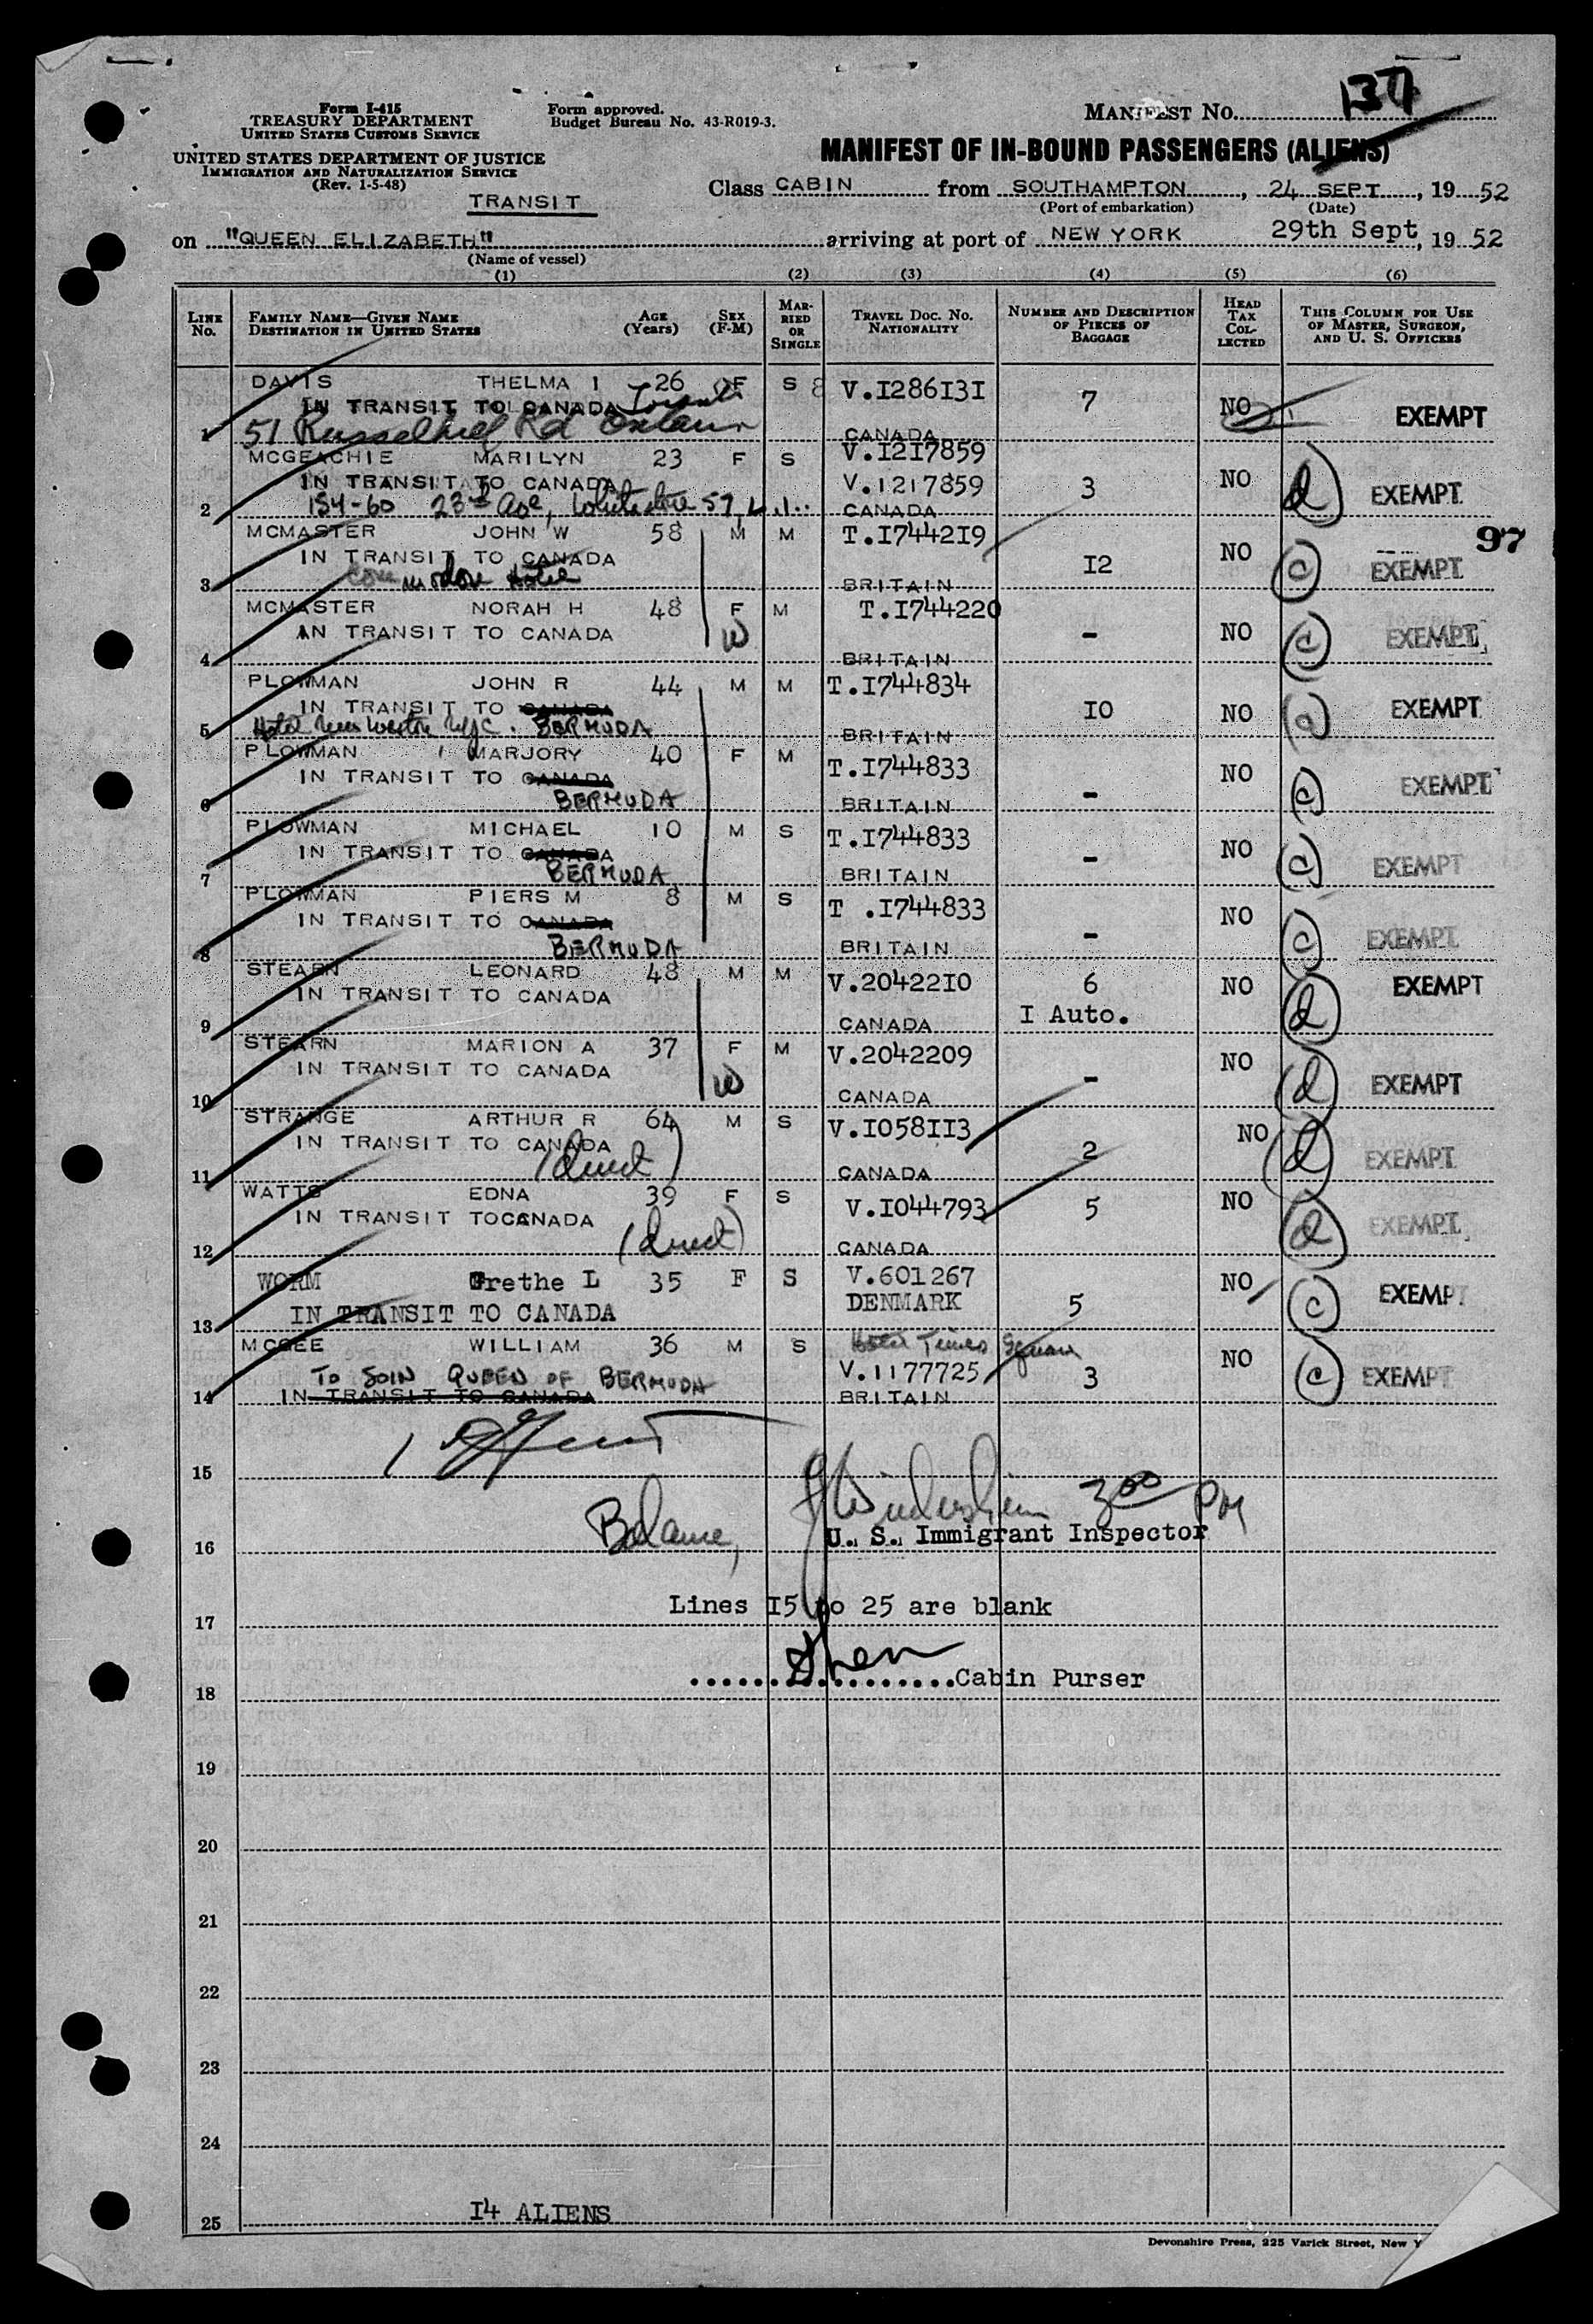 Form I-415
TREASURY DEPARTMENT
UNITED STATES CUSTOMS SERVICE
UNITED STATES DEPARTMENT OF JUSTICE
IMMIGRATION AND NATURALIZATION SERVICE
(Rev. 1-5-48)
TRANSIT
Form approved.
Budget Bureau No. 43-R019-3.
MANIFEST No. 137
MANIFEST OF IN-BOUND PASSENGERS (ALIENS)
Class CABIN from SOUTHAMPTON, 24 SEPT, 19 52
(Port of embarkation) (Date)
on "QUEEN ELIZABETH" arriving at port of NEW YORK 29th Sept, 19 52
(Name of vessel)
(1) (2) (3) (4) (5) (6)
LINE No. FAMILY NAME—GIVEN NAME DESTINATION IN UNITED STATES AGE (Years) SEX (F-M) MARRIED OR SINGLE TRAVEL DOC. No. NATIONALITY NUMBER AND DESCRIPTION OF PIECES OF BAGGAGE HEAD TAX COLLECTED THIS COLUMN FOR USE OF MASTER, SURGEON, AND U. S. OFFICERS
DAVIS THELMA I 26 F S V.I286I3I 7 NO EXEMPT
IN TRANSIT TO CANADA Toronto
1 51 Russelhill Rd Ontario CANADA
MCGEACHIE MARILYN 23 F S V.I2I7859
IN TRANSIT TO CANADA V.1217859 3 NO d EXEMPT
2 154-60 23rd Ave, Whitestone 57, L.I. CANADA
97
MCMASTER JOHN W 58 M M T.I7442I9
IN TRANSIT TO CANADA I2 NO c EXEMPT
3 Hotel BRITAIN
MCMASTER NORAH H 48 F M T.I744220
IN TRANSIT TO CANADA W - NO c EXEMPT
4 BRITAIN
PLOWMAN JOHN R 44 M M T.I744834
IN TRANSIT TO CANADA I0 NO EXEMPT
5 Hotel New Weston NYC. BERMUDA BRITAIN
PLOWMAN MARJORY 40 F M T.I744833
IN TRANSIT TO CANADA - NO c EXEMPT
6 BERMUDA BRITAIN
PLOWMAN MICHAEL 10 M S T.I744833
IN TRANSIT TO CANADA - NO c EXEMPT
7 BERMUDA BRITAIN
PLOWMAN PIERS M 8 M S T .I744833
IN TRANSIT TO CANADA - NO c EXEMPT
8 BERMUDA BRITAIN
STEARN LEONARD 48 M M V.20422I0 6 NO d EXEMPT
IN TRANSIT TO CANADA I Auto.
9 CANADA
STEARN MARION A 37 F M V.2042209
IN TRANSIT TO CANADA W - NO d EXEMPT
10 CANADA
STRANGE ARTHUR R 64 M S V.I058II3
IN TRANSIT TO CANADA 2 NO d EXEMPT
11 (direct) CANADA
WATTS EDNA 39 F S V.I044793
IN TRANSIT TO CANADA 5 NO d EXEMPT
12 (direct) CANADA
WORM Grethe L 35 F S V.601267 NO
DENMARK 5 c EXEMPT
13 IN TRANSIT TO CANADA
MCGEE WILLIAM 36 M S Hotel Times Square
TO JOIN QUEEN OF BERMUDA V.1177725 3 NO c EXEMPT
14 IN TRANSIT TO CANADA BRITAIN
15
3 00 PM
16 U. S. Immigrant Inspector
17 Lines I5 to 25 are blank
18 ....................Cabin Purser
19
20
21
22
23
24
25 I4 ALIENS
Devonshire Press, 225 Varick Street, New Y